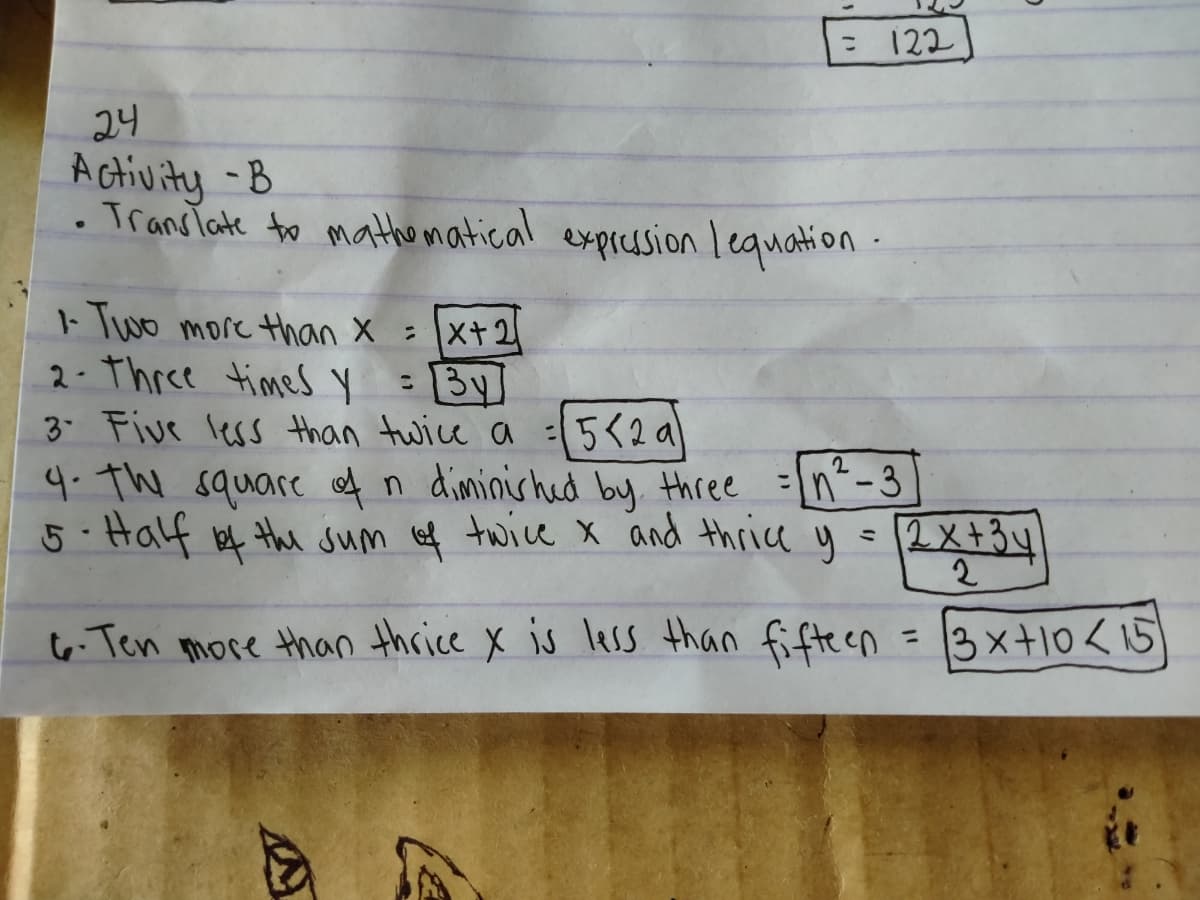 = 122
24
Activity - B
• Translate to mathematical expression / equation.
1- Two more than x = x+2
2- Three times y = 3y
3- Five less than twice a = 5<2a
4. The square of n diminished by three = n²-3
5- Half of the sum of twice x and thrice y = 2x+3y
2
6- Ten more than thrice x is less than fifteen = 3x+10<15